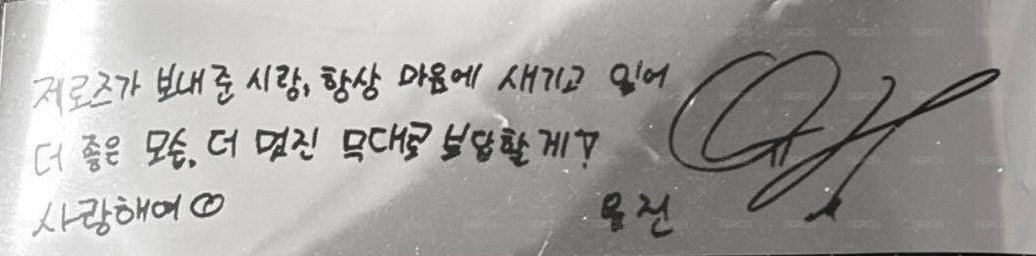 제로즈가 보내준 사랑, 항상 마음에 새기고 있어
더 좋은 모습, 더 멋진 무대로 보답할게♡
사랑해여♡
유진